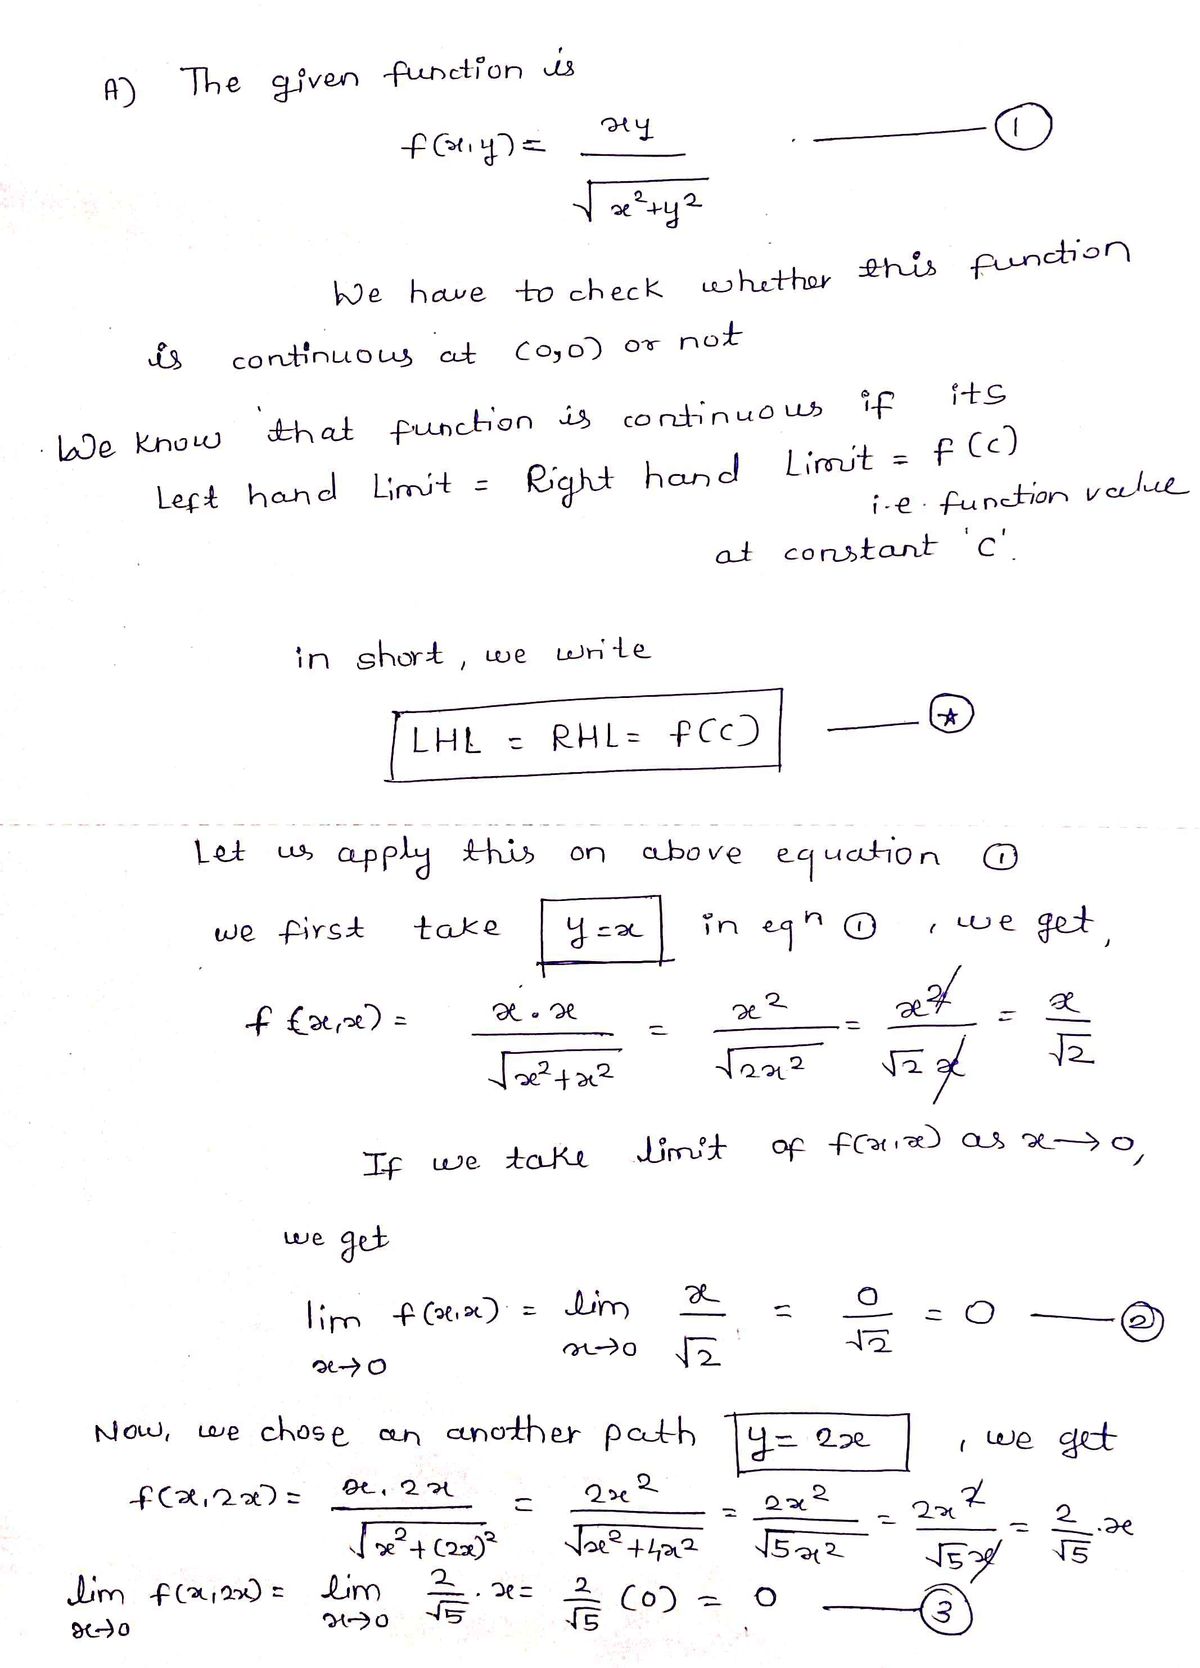 A) The given function is
f(x,y) = xy / √(x²+y²) ——— ①
We have to check whether this function
is continuous at (0,0) or not
We know that function is continuous if its
Left hand Limit = Right hand Limit = f(c)
i.e. function value
at constant 'c'.
in short, we write
LHL = RHL = f(c) ——— ☆
Let us apply this on above equation ①
we first take y=x in eqn ①, we get,
f(x,x) = x.x / √(x²+x²) = x² / √2x² = x² / √2 x = x / √2
If we take limit of f(x,x) as x→0,
we get
lim x→0 f(x,x) = lim x→0 x/√2 = 0/√2 = 0 ——— ②
Now, we chose an another path y = 2x, we get
f(x,2x) = x.2x / √(x²+(2x)²) = 2x² / √(x²+4x²) = 2x² / √5x² = 2x² / √5x = 2/√5 .x
lim x→0 f(x,2x) = lim x→0 2/√5 . x = 2/√5 (0) = 0 ——— ③